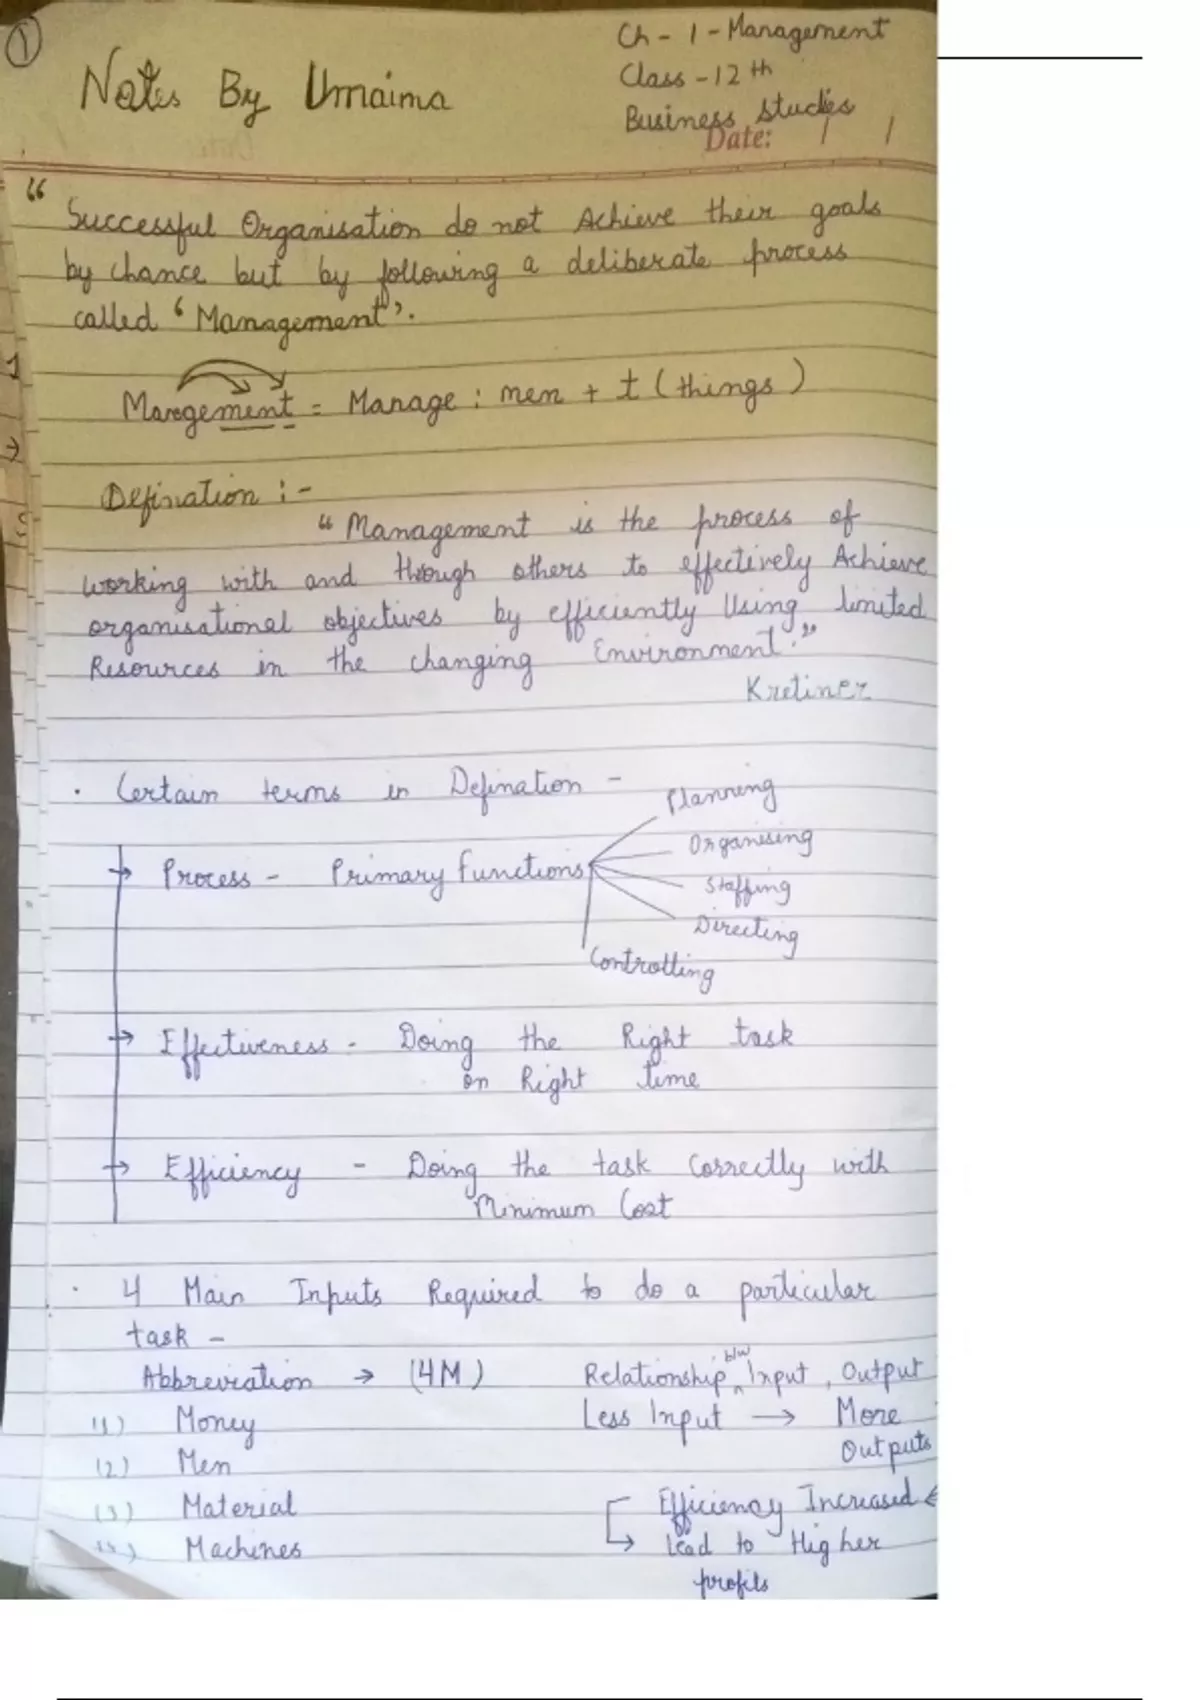 1
Notes By Umaima
Ch - 1 - Management
Class - 12th
Business Studies
Date: / /
" Successful Organisation do not Achieve their goals
by chance but by following a deliberate process
called ' Management'.
Management = Manage : men + t (things)
Defination :-
" Management is the process of
working with and through others to effectively Achieve
organisational objectives by efficiently Using limited
Resources in the changing Environment."
Kretiner
. Certain terms in Defination -
→ Process - Primary functions
Planning
Organising
Staffing
Directing
Controlling
→ Effectiveness - Doing the Right task
on Right time
→ Efficiency - Doing the task Correctly with
Minimum Cost
. 4 Main Inputs Required to do a particular
task -
Abbreviation → (4M)
(1) Money
(2) Men
(3) Material
(4) Machines
Relationship b/w Input, Output
Less Input → More
Outputs
Efficiency Increased ←
→ Lead to Higher
profits